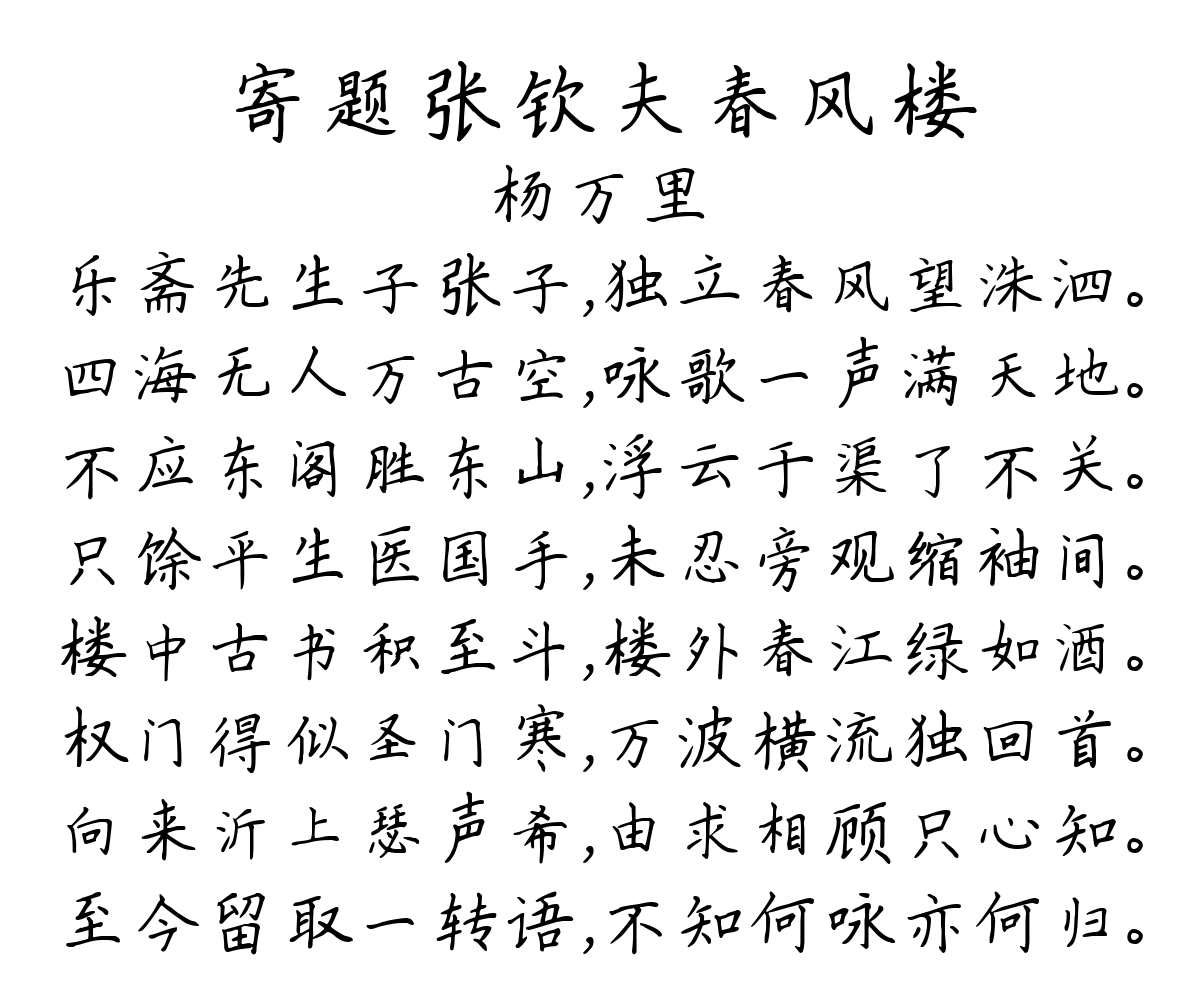 寄题张钦夫春风楼
杨万里
乐斋先生子张子,独立春风望洙泗。
四海无人万古空,咏歌一声满天地。
不应东阁胜东山,浮云于渠了不关。
只馀平生医国手,未忍旁观缩袖间。
楼中古书积至斗,楼外春江绿如酒。
权门得似圣门寒,万波横流独回首。
向来沂上瑟声希,由求相顾只心知。
至今留取一转语,不知何咏亦何归。